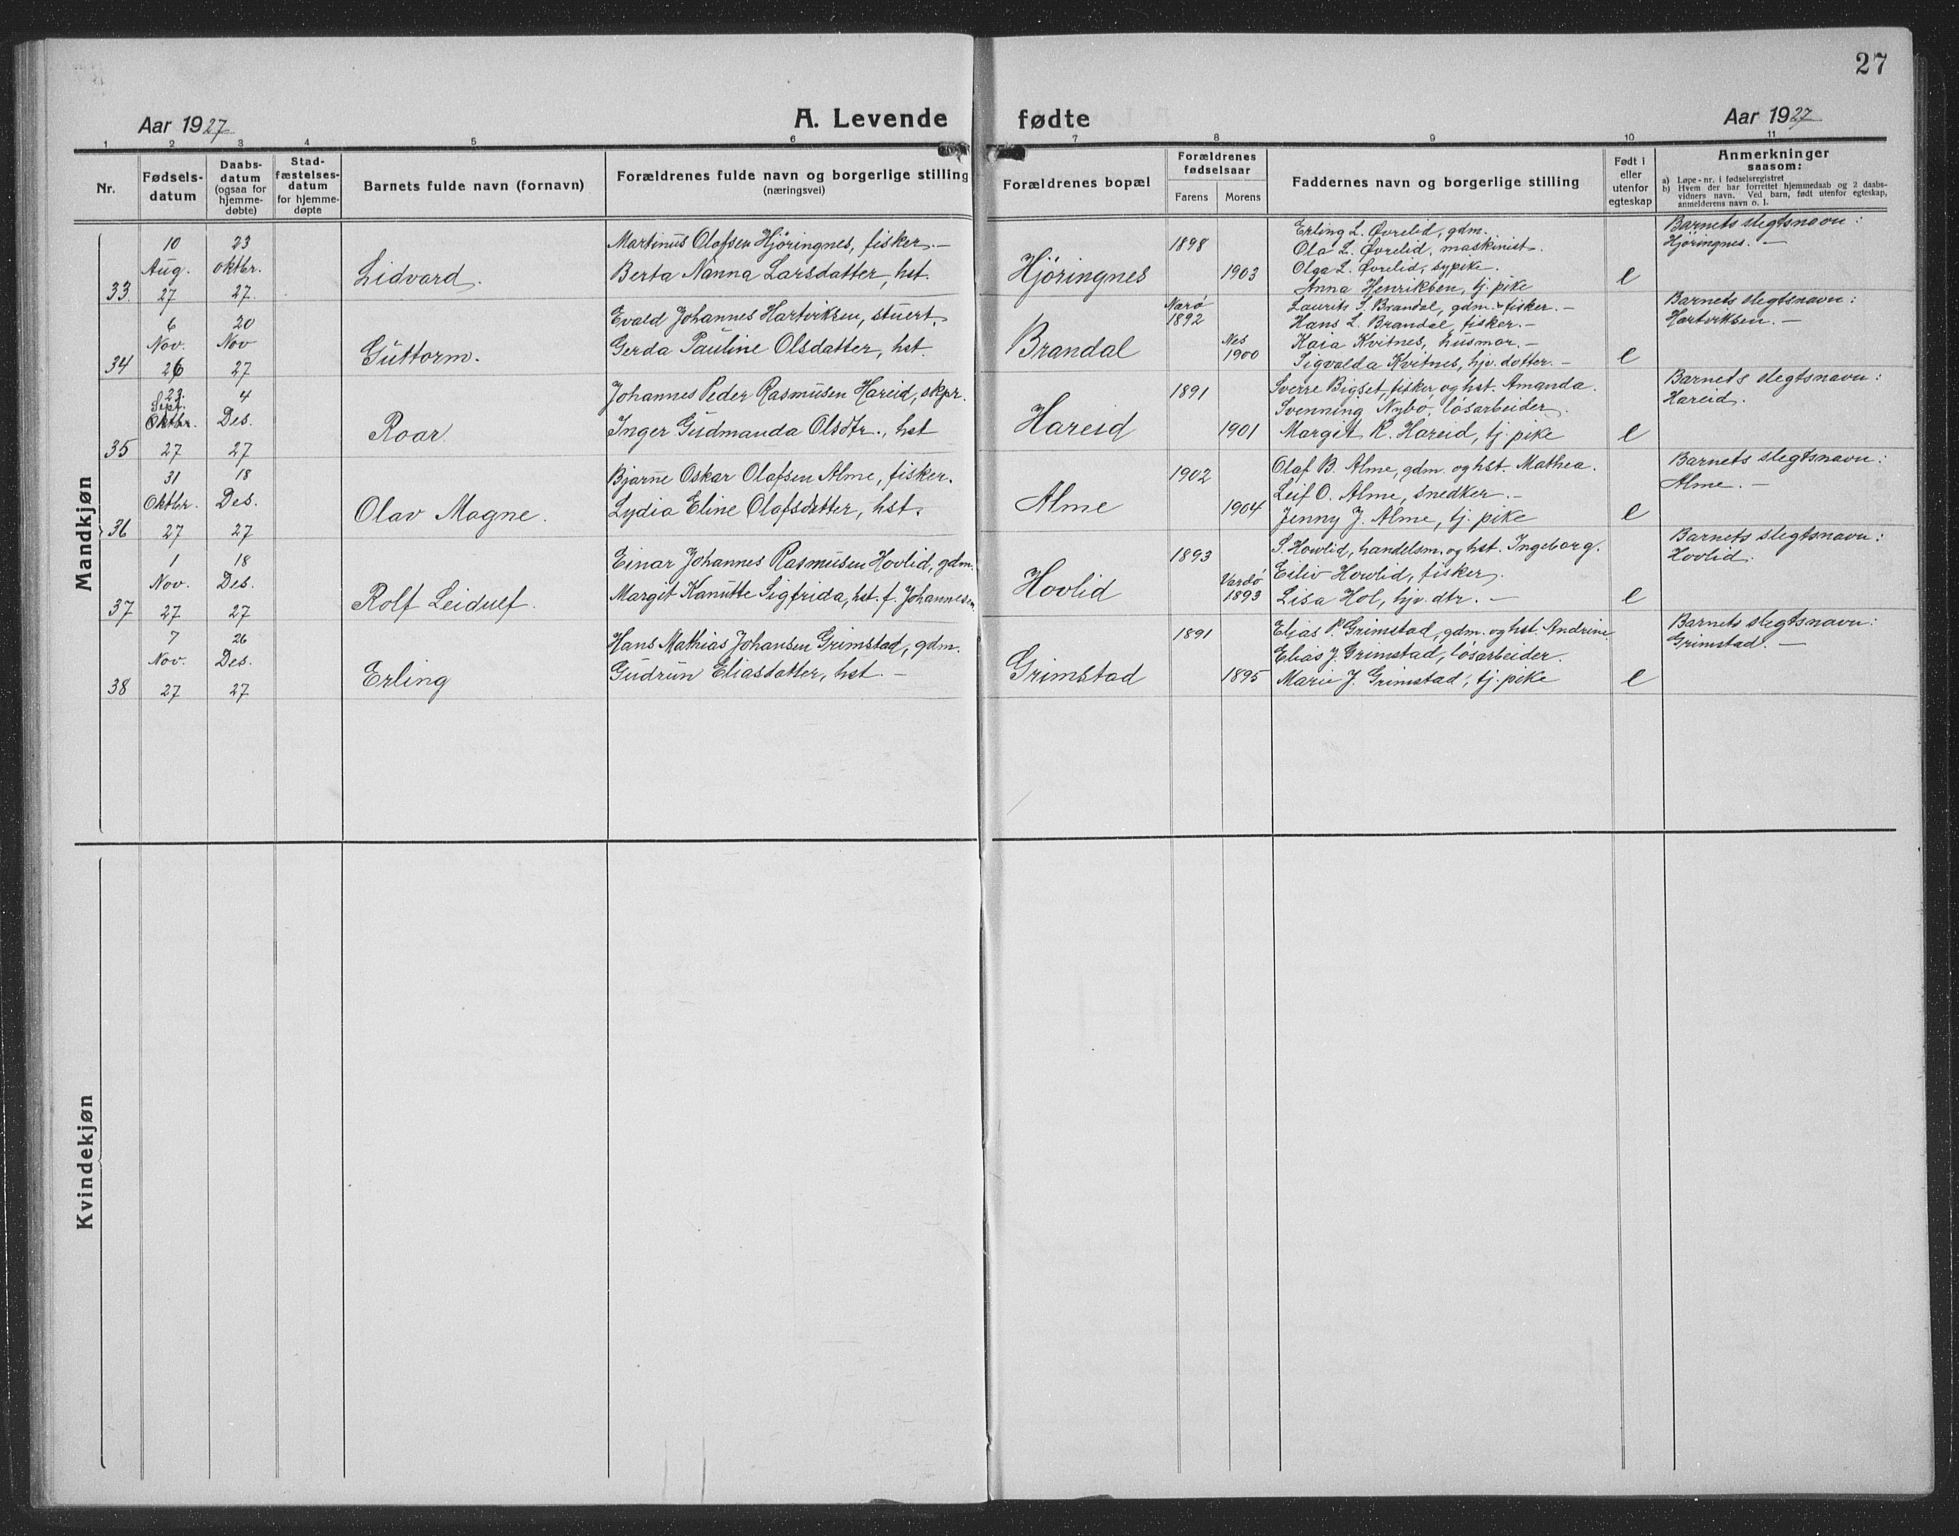 27
Aar 1927
A. Levende fødte
Aar 1927
1 2 3 4 5 6 7 8 9 10 11
Nr.
Fødsels-
datum
Daabs-
datum
(ogsaa for
hjemme-
døbte)
Stad-
fæstelses-
datum
for hjemme-
døpte
Barnets fulde navn (fornavn)
Forældrenes fulde navn og borgerlige stilling
(næringsvei)
Forældrenes bopæl
Forældrenes
fødselsaar
Farens Morens
Faddernes navn og borgerlige stilling
Født i
eller
utenfor
egteskap
Anmerkninger
saasom:
a) Løpe-nr. i fødselsregistret
b) Hvem der har forrettet hjemmedaab og 2 daabs-
vidners navn. Ved barn, født utenfor egteskap,
anmelderens navn o. l.
Mandkjøn
33
10
Aug.
27
23
oktbr.
27.
Lidvard.
Martinus Olofsen Hjöringnes, fisker. —
Berta Nanna Larsdatter, hst.
Hjöringnes
1898
1903
Erling L. Øvrelid, gdm.
Ola L. Øvrelid, maskinist.
Olga L. Øvrelid, sypike.
Anna Henriksen, tj. pike
e
Barnets slegtsnavn:
Hjöringnes. —
34
6
Nov.
26
20
Nov
27
Guttorm.
Evald Johannes Hartviksen, stuert.
Gerda Pauline Olsdatter, hst.
Brandal
Narö
1892
Nes
1900
Laurits S. Brandal, gdm. fisker. —
Hans L. Brandal, fisker. —
Kaia Kvitnes, husmor. —
Sigvalda Kvitnes, hjv. dotter. —
e
Barnets slegtsnavn:
Hartviksen. —
35
23.
Sept.
Oktbr.
27
4
Des.
27
Roar
Johannes Peder Rasmusen Hareid, skpr.
Inger Gudmanda Olsdtr., hst
Hareid
1891
1901
Sverre Bigset, fisker, og hst. Amanda.
Svenning Nybö, løsarbeider.
Margit R. Hareid, tj. pike
e
Barnets slegtsnavn:
Hareid.
36
31
Oktbr.
27
18
Des.
27
Olav Magne.
Bjarne Oskar Olafsen Alme, fisker.
Lydia Eline Olafsdatter, hst.
Alme
1902
1904
Olaf B. Alme, gdm. og hst. Mathea.
Leif O. Alme, snedker. —
Jenny J. Alme, tj. pike
e
Barnets slegtsnavn:
Alme. —
37
1
Nov.
27
18
Des.
27
Rolf Leidulf.
Einar Johannes Rasmusen Hovlid, gdm.
Margit Kanutte Sigfrida, hst. f. Johannesen
Hovlid
1893
Vardö
1893
S. Hovlid, handelsm. og hst. Ingeborg.
Eiliv Hovlid, fisker.
Lisa Hol, hjv. dtr. —
e
Barnets slegtsnavn:
Hovlid.
38
7
Nov.
27
26
Des.
27
Erling
Hans Mathias Johansen Grimstad, gdm.
Gudrun Eliasdatter, hst. —
Grimstad
1891
1895
Elias P. Grimstad, gdm. og hst. Andrine
Elias J. Grimstad, løsarbeider.
Marie J. Grimstad, tj. pike
e
Barnets slegtsnavn:
Grimstad. —
Kvindekjøn